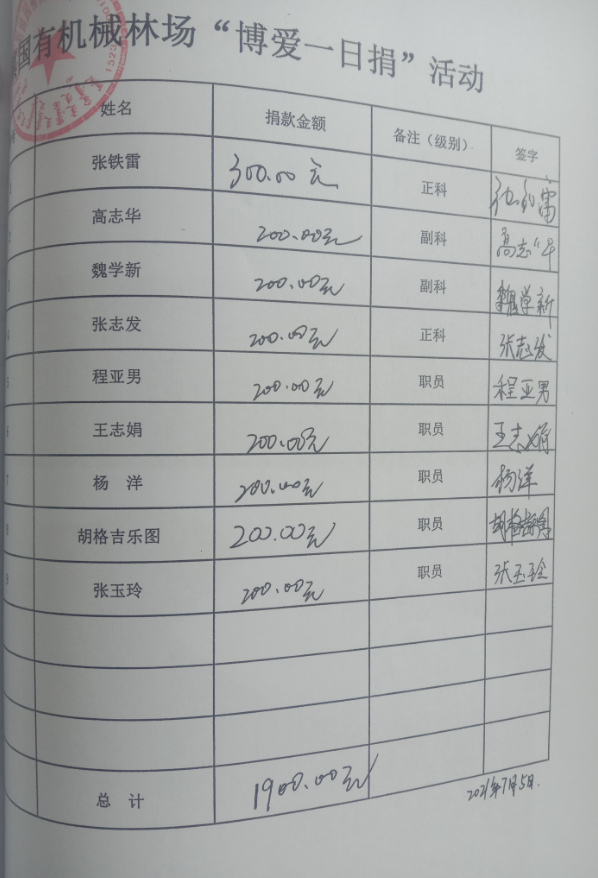 国有机械林场“博爱一日捐”活动
姓名 捐款金额 备注（级别） 签字
张铁雷 300.00元 正科
2 高志华 200.00元 副科 高志华
3 魏学新 200.00元 副科 魏学新
4 张志发 200.00元 正科 张志发
5 程亚男 200.00元 职员 程亚男
6 王志娟 200.00元 职员 王志娟
7 杨 洋 200.00元 职员 杨洋
8 胡格吉乐图 200.00元 职员
9 张玉玲 200.00元 职员 张玉玲
总 计 1900.00元
2021年7月5日.